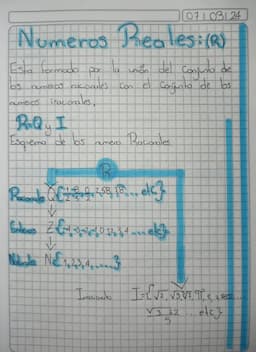 07|03|24
Numeros Reales:(R)
Esta formado por la unión del Conjunto de
los numeros racionales con el Conjunto de los
numeros iracionales,
R=Q y I
Esquema de los numero Racionales
R
Racionales Q{ ... etc}
Enteros Z{ ... 0,1,2,3,4 ... etc}
Naturales N{1,2,3,4, .....}
Iracionales I={√2, √3, √7, π, e,
... etc}